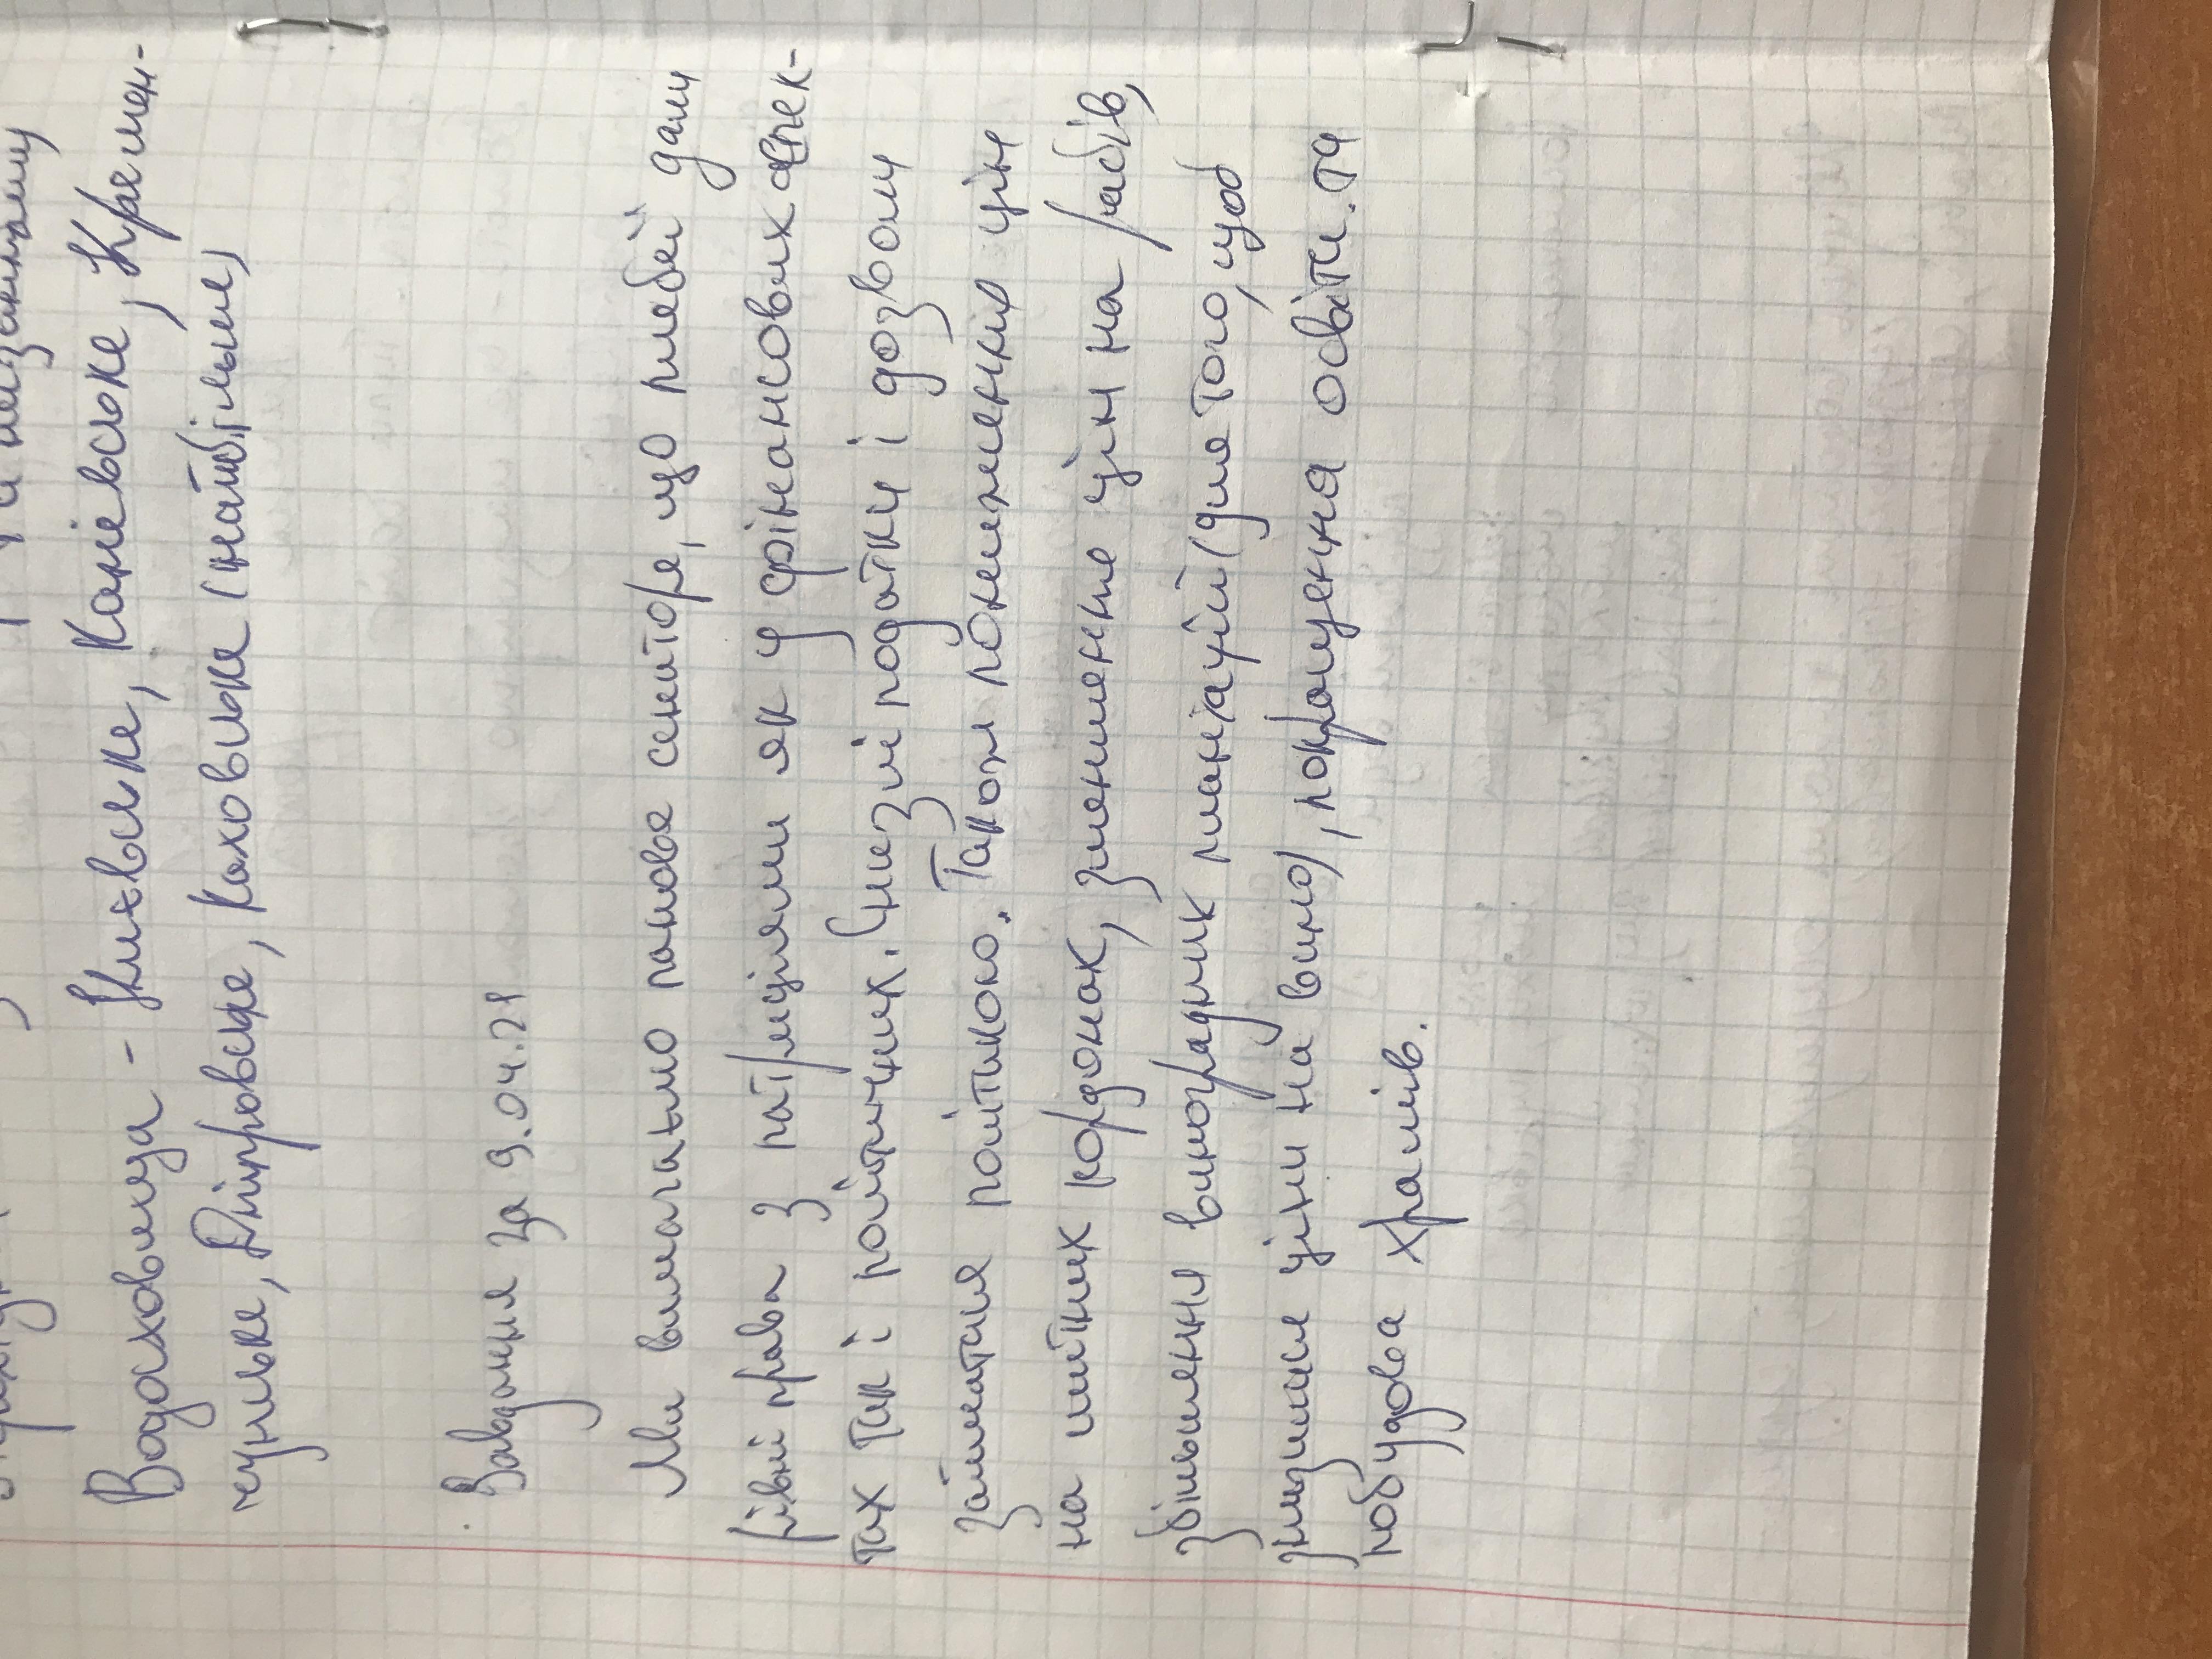 Водосховища - Київське, Канівське, Кремен-
чуцьке, Дніпровське, Каховське (найбільше)
Завдання за 9.04.21
Ми вимагаємо нанове сенторе, що плебеї дали
рівні права з патриціями як у фінансових аспек-
тах так і політичних. Знизлі податки і дозволи
займатися політикою. Також пониження цін
на митних кордонах, зменшення цін на рабів,
збільшення виноградник плантацій (для того, щоб
знизилися ціни на вино), покращення освіти. та
побудова храмів.